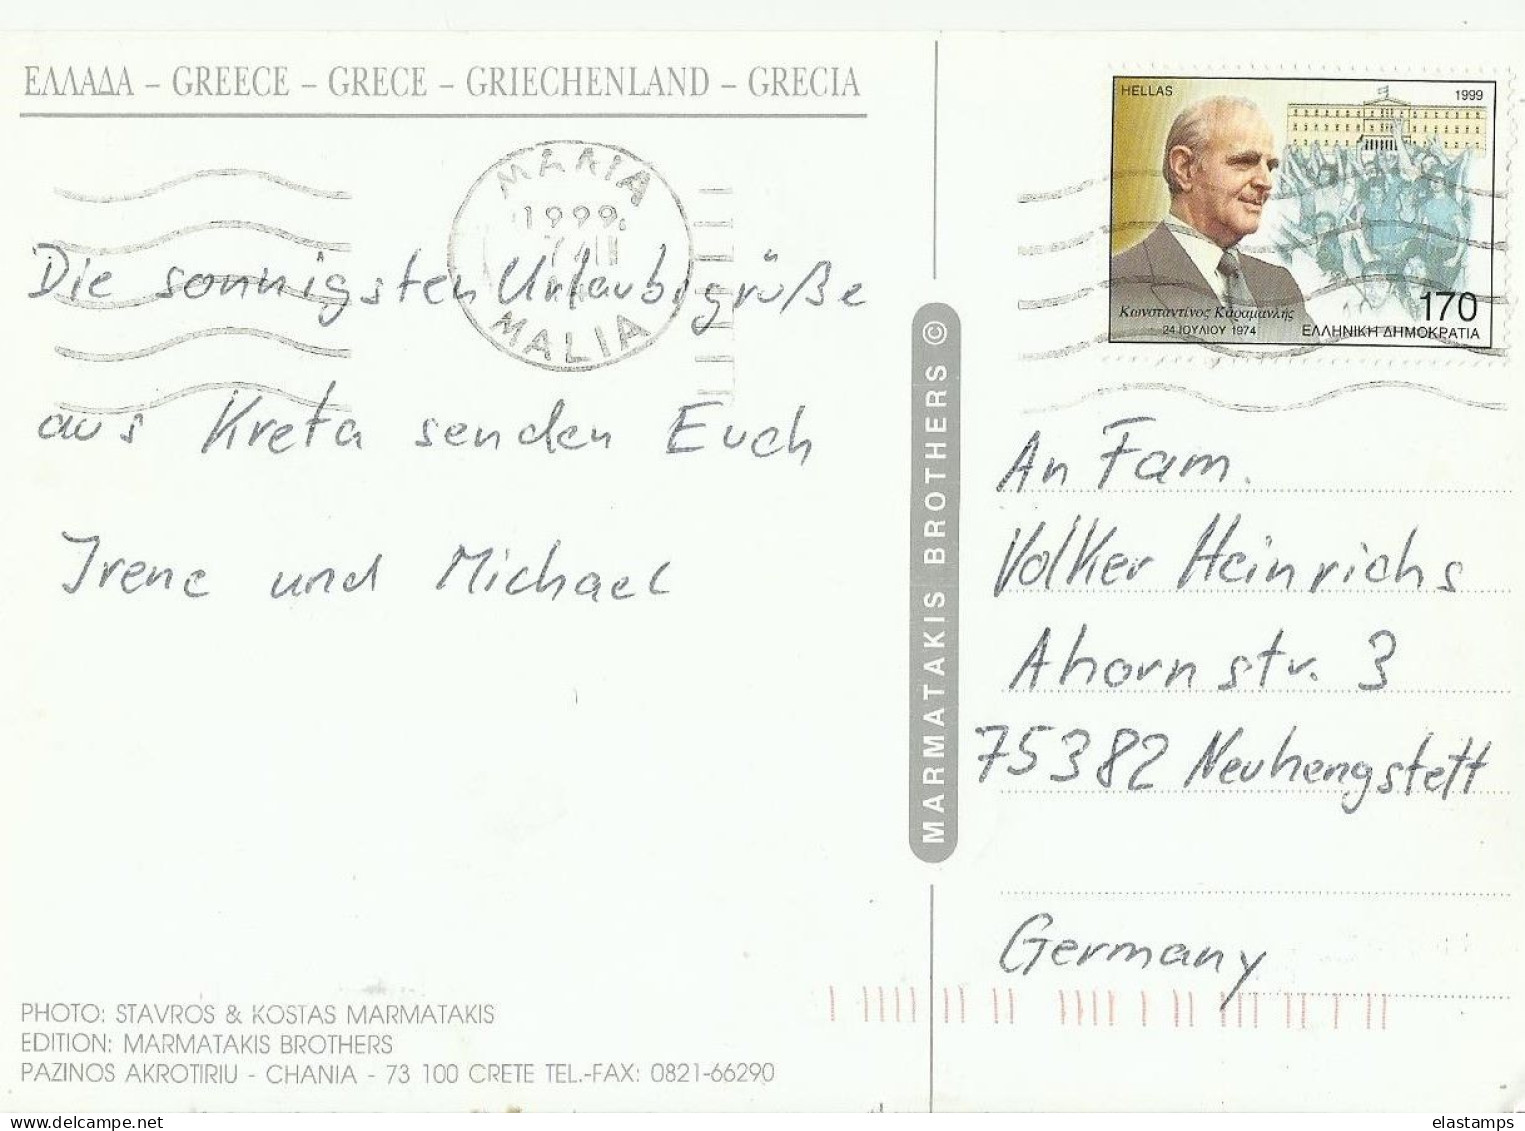 ΕΛΛΑΔΑ – GREECE – GRECE – GRIECHENLAND – GRECIA
ΜΑΛΙΑ
1999
MALIA
Die sonnigsten Urlaubsgrüße
aus Kreta senden Euch
Irene und Michael
PHOTO: STAVROS & KOSTAS MARMATAKIS
EDITION: MARMATAKIS BROTHERS
PAZINOS AKROTIRIU - CHANIA - 73 100 CRETE TEL.-FAX: 0821-66290
MARMATAKIS BROTHERS ©
HELLAS
1999
Κωνσταντίνος Καραμανλής
24 ΙΟΥΛΙΟΥ 1974
170
ΕΛΛΗΝΙΚΗ ΔΗΜΟΚΡΑΤΙΑ
An Fam.
Volker Heinrichs
Ahornstr. 3
75382 Neuhengstett
Germany
elastamps